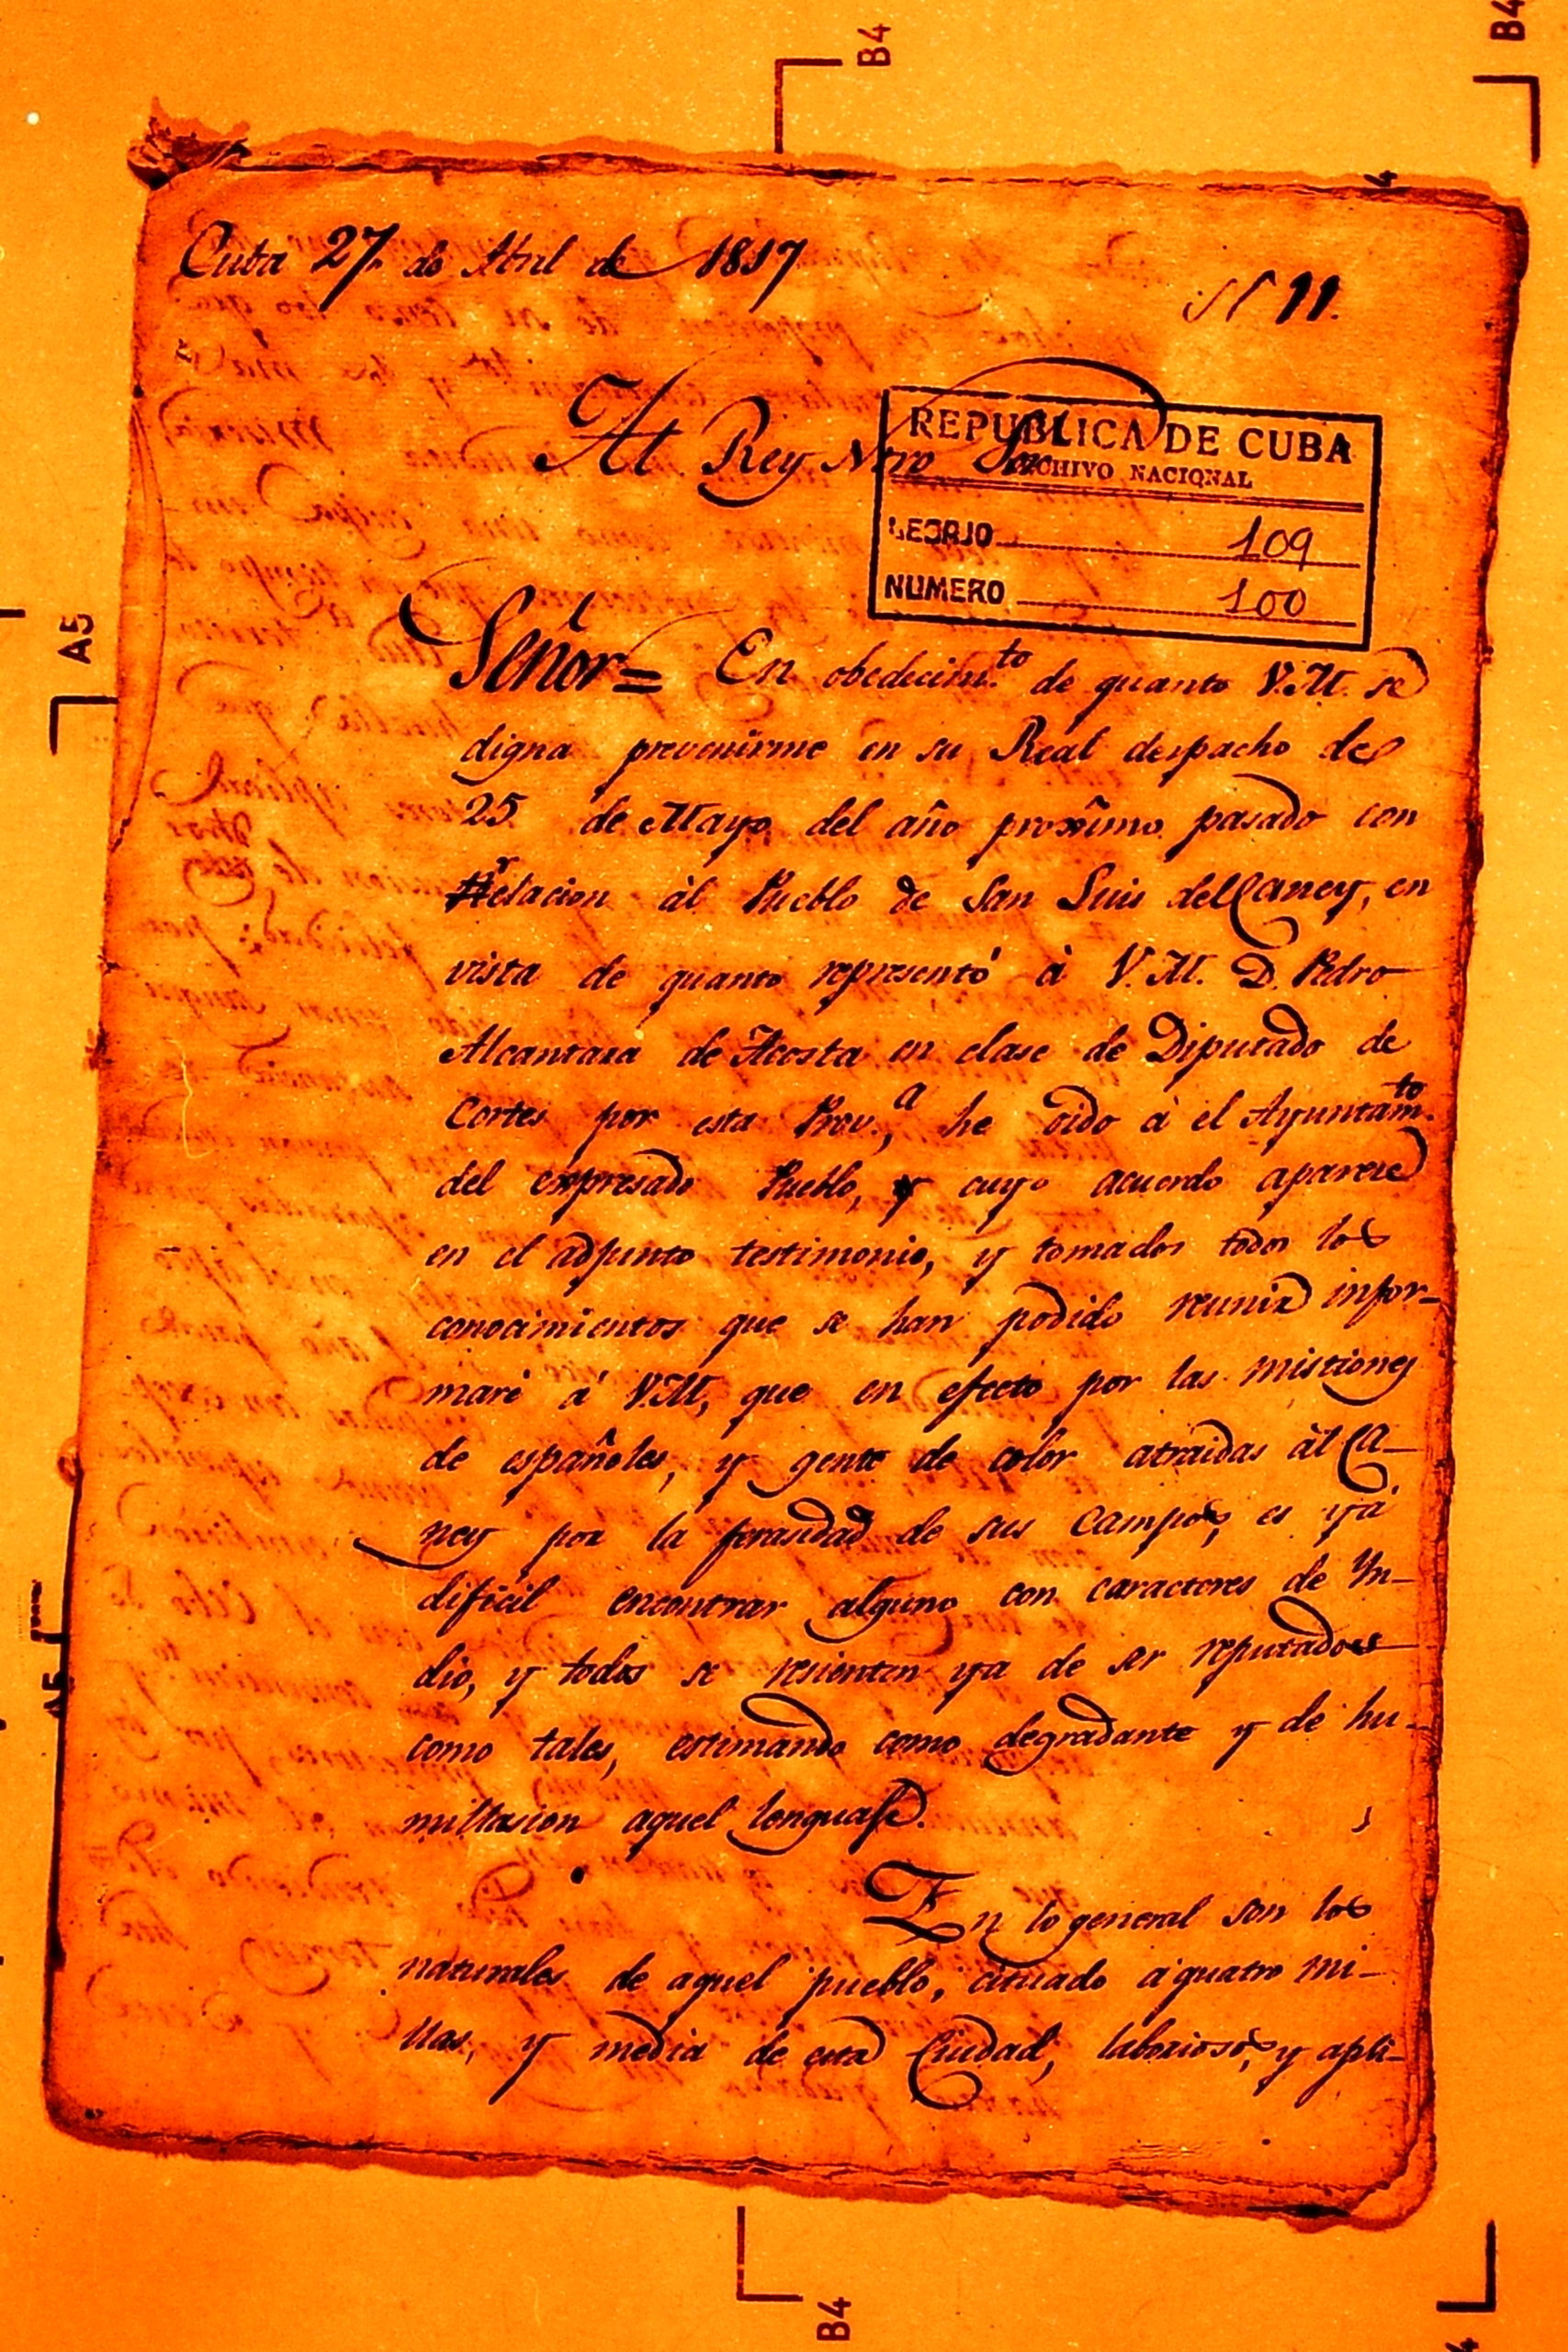 B4
B4
Cuba 27 de Abril de 1817
N 11.
Al Rey Ntro Sor
REPUBLICA DE CUBA
ARCHIVO NACIONAL
LEGAJO 109
NUMERO 100
A5
Señor= En obedecim.to de quanto V.M. se
digna prevenirme en su Real despacho de
25 de Mayo del año proximo pasado con
relacion ál Pueblo de San Luis del Caney, en
vista de quanto representó á V.M. D. Pedro
Alcantara de Acosta en clase de Diputado de
Cortes por esta Prov.a, he oido á el Ayuntam.to
del expresado Pueblo, cuyo acuerdo aparece
en el adjunto testimonio, y tomados todos los
conocimientos que se han podido reunir infor-
maré á V.M, que en efecto por las mistiones
de españoles, y gente de color atraidas ál Ca-
ney por la ferasidad de sus Campos, es yá
dificil encontrar alguno con caracteres de Yn-
dio, y todos se resienten ya de ser reputados
como tales, estimando como degradante y de hu-
millasion aquel lenguaje.
En lo general son los
naturales de aquel pueblo, cituado á quatro mi-
llas, y media de esta Ciudad, laboriosos, y apli-
A5
B4